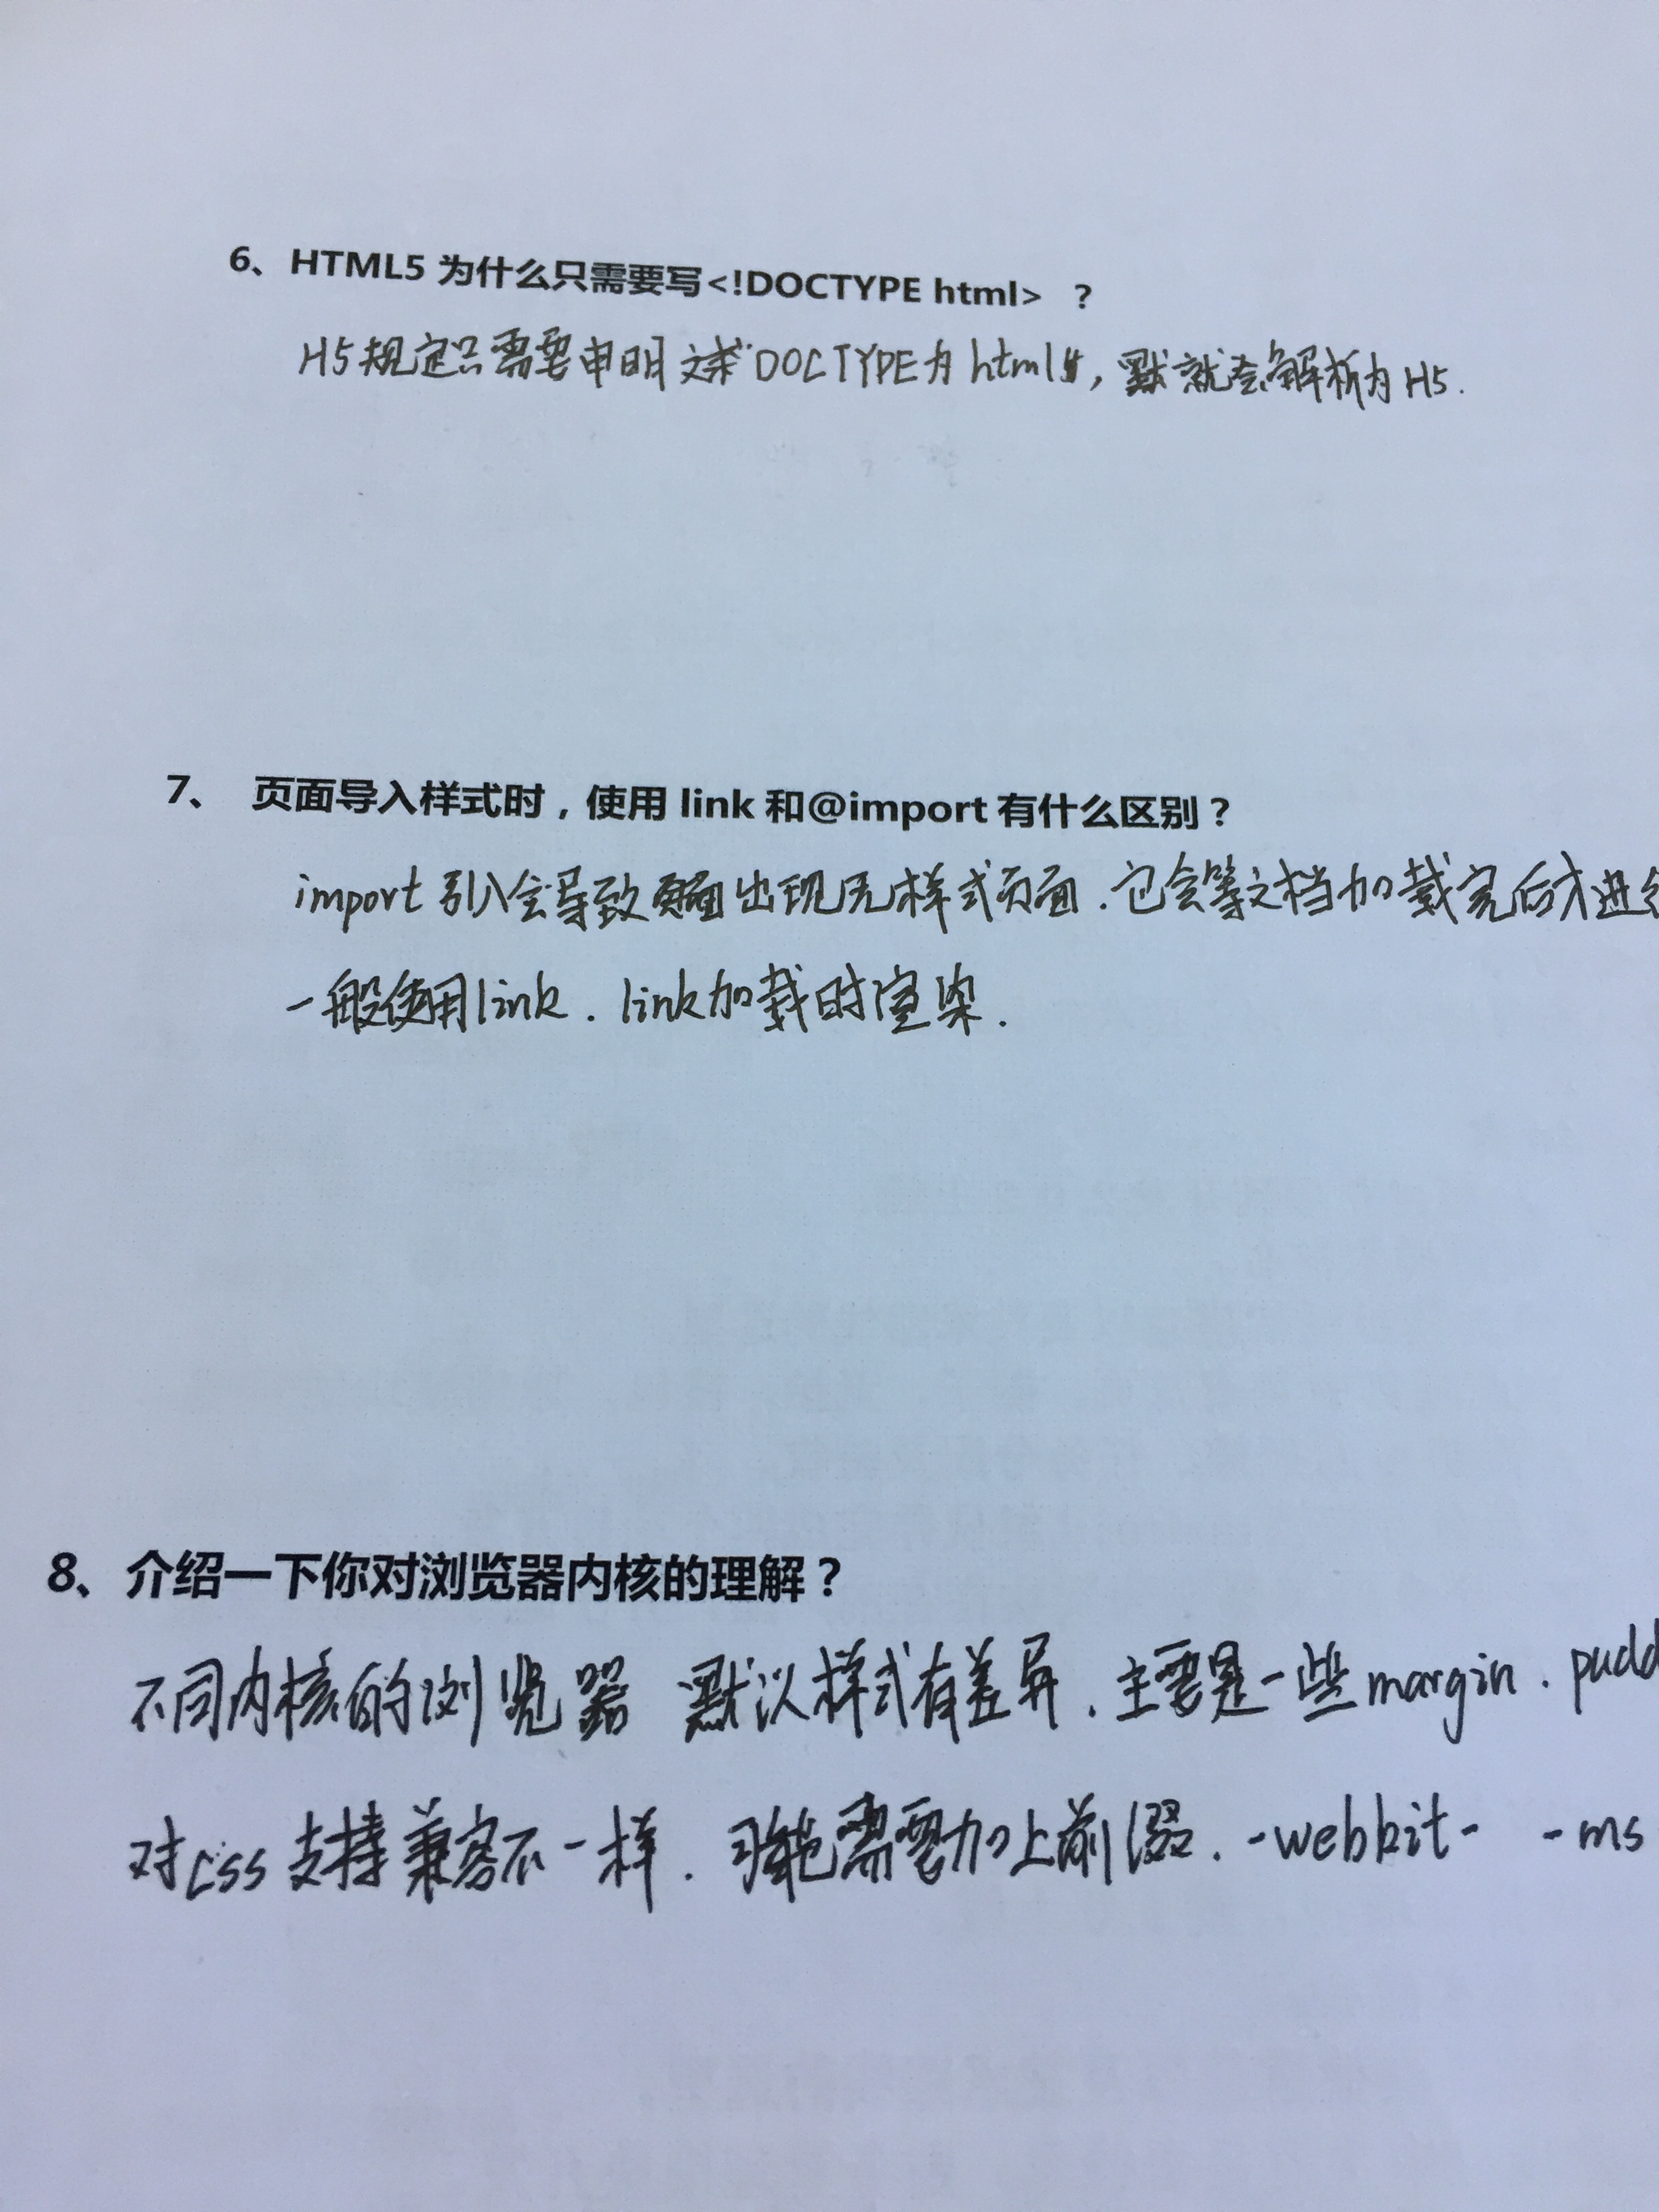 6、HTML5 为什么只需要写<!DOCTYPE html> ？
H5规定只需要申明 DOCTYPE为html, 就会解析为H5.
7、 页面导入样式时，使用 link 和@import 有什么区别？
import 引入会导致页面出现无样式页面.它会等文档加载完后才进行
一般使用link. link加载时渲染.
8、介绍一下你对浏览器内核的理解？
不同内核的浏览器 默认样式有差异.主要是一些margin.padd
对css支持兼容不一样. 可能需要加上前缀.-webkit- -ms